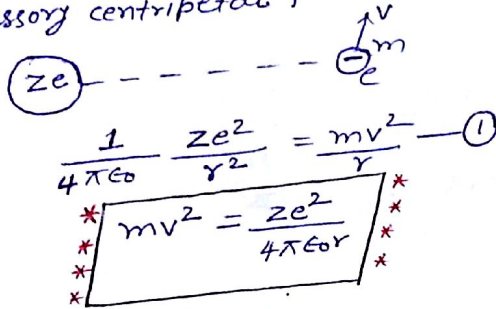 ssory centripetal
v
ze - - - - - - - e m
1/4πε0 ze²/r² = mv²/r —①
mv² = ze²/4πε0r